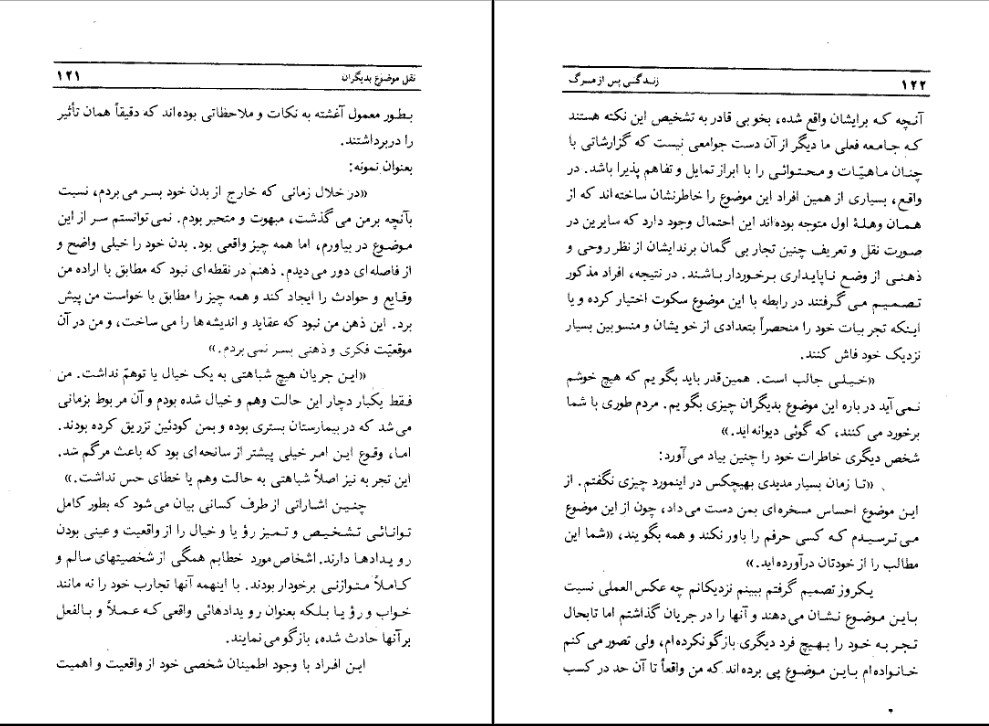 نقل موضوع بدیگران ۱۲۱
بطور معمول آغشته به نکات و ملاحظاتی بوده‌اند که دقیقاً همان تأثیر
را دربرداشتند.
بعنوان نمونه:
«در خلال زمانی که خارج از بدن خود بسر می‌بردم، نسبت
بآنچه برمن می‌گذشت، مبهوت و متحیر بودم. نمی‌توانستم سر از این
موضوع در بیاورم، اما همه چیز واقعی بود. بدن خود را خیلی واضح و
از فاصله‌ای دور می‌دیدم. ذهنم در نقطه‌ای نبود که مطابق با اراده من
وقایع و حوادث را ایجاد کند و همه چیز را مطابق با خواست من پیش
برد. این ذهن من نبود که عقاید و اندیشه‌ها را می‌ساخت، و من در آن
موقعیّت فکری و ذهنی بسر نمی‌بردم.»
«این جریان هیچ شباهتی به یک خیال یا توهمّ نداشت. من
فقط یکبار دچار این حالت وهم و خیال شده بودم و آن مربوط بزمانی
می‌شد که در بیمارستان بستری بوده و بمن کودئین تزریق کرده بودند.
اما، وقوع این امر خیلی پیشتر از سانحه‌ای بود که باعث مرگم شد.
این تجربه نیز اصلاً شباهتی به حالت وهم یا خطای حس نداشت.»
چنین اشاراتی از طرف کسانی بیان می‌شود که بطور کامل
توانائی تشخیص و تمیز رؤیا و خیال را از واقعیت و عینی بودن
رویدادها دارند. اشخاص مورد خطابم همگی از شخصیتهای سالم و
کاملاً متوازنی برخودار بودند. با اینهمه آنها تجارب خود را نه مانند
خواب و رؤیا بلکه بعنوان رویدادهائی واقعی که عملاً و بالفعل
برآنها حادث شده، بازگو می‌نمایند.
این افراد با وجود اطمینان شخصی خود از واقعیت و اهمیت
۱۲۲ زندگی پس از مرگ
آنچه که برایشان واقع شده، بخوبی قادر به تشخیص این نکته هستند
که جامعه فعلی ما دیگر از آن دست جوامعی نیست که گزارشاتی با
چنان ماهیّات و محتوائی را با ابراز تمایل و تفاهم پذیرا باشد. در
واقع، بسیاری از همین افراد این موضوع را خاطرنشان ساخته‌اند که از
همان وهلهٔ اول متوجه بوده‌اند این احتمال وجود دارد که سایرین در
صورت نقل و تعریف چنین تجاربی گمان برند ایشان از نظر روحی و
ذهنی از وضع ناپایداری برخوردار باشند. در نتیجه، افراد مذکور
تصمیم می‌گرفتند در رابطه با این موضوع سکوت اختیار کرده و یا
اینکه تجربیات خود را منحصراً بتعدادی از خویشان و منسوبین بسیار
نزدیک خود فاش کنند.
«خیلی جالب است. همین‌قدر باید بگویم که هیچ خوشم
نمی‌آید درباره این موضوع بدیگران چیزی بگویم. مردم طوری با شما
برخورد می‌کنند، که گوئی دیوانه‌اید.»
شخص دیگری خاطرات خود را چنین بیاد می‌آورد:
«تا زمان بسیار مدیدی بهیچکس در اینمورد چیزی نگفتم. از
این موضوع احساس مسخره‌ای بمن دست می‌داد، چون از این موضوع
می‌ترسیدم که کسی حرفم را باور نکند و همه بگویند، «شما این
مطالب را از خودتان درآورده‌اید.»
یکروز تصمیم گرفتم ببینم نزدیکانم چه عکس‌العملی نسبت
باین موضوع نشان می‌دهند و آنها را در جریان گذاشتم اما تابحال
تجربه خود را بهیچ فرد دیگری بازگو نکرده‌ام، ولی تصور می‌کنم
خانواده‌ام باین موضوع پی برده‌اند که من واقعاً تا آن حد در کسب